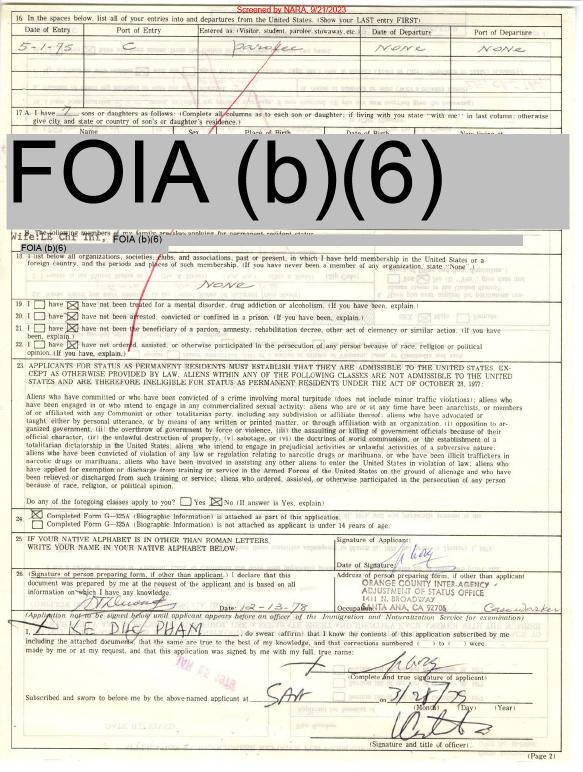 Screened by NARA, 9/21/2023
16 In the spaces below, list all of your entries into and departures from the United States. (Show your LAST entry FIRST)
Date of Entry Port of Entry Entered as: (Visitor, student, parolee, stowaway, etc.) Date of Departure Port of Departure
5-1-75 C parolee NONE NONE
17 A. I have 7 sons or daughters as follows: (Complete all columns as to each son or daughter; if living with you state "with me" in last column; otherwise
give city and state or country of son's or daughter's residence.)
Name Sex Place of Birth Date of Birth Now living at
FOIA (b)(6)
B. The following members of my family are also applying for permanent resident status
Wife:LE Chi Thi, FOIA (b)(6)
FOIA (b)(6)
18. I list below all organizations, societies, clubs, and associations, past or present, in which I have held membership in the United States or a
foreign country, and the periods and places of such membership. (If you have never been a member of any organization, state "None".)
NONE
19. I have have not been treated for a mental disorder, drug addiction or alcoholism. (If you have been, explain.)
20. I have have not been arrested, convicted or confined in a prison. (If you have been, explain.)
21. I have have not been the beneficiary of a pardon, amnesty, rehabilitation decree, other act of clemency or similar action. (If you have
been, explain.)
22. I have have not ordered, assisted, or otherwise participated in the persecution of any person because of race, religion or political
opinion. (If you have, explain.)
23 APPLICANTS FOR STATUS AS PERMANENT RESIDENTS MUST ESTABLISH THAT THEY ARE ADMISSIBLE TO THE UNITED STATES. EX-
CEPT AS OTHERWISE PROVIDED BY LAW, ALIENS WITHIN ANY OF THE FOLLOWING CLASSES ARE NOT ADMISSIBLE TO THE UNITED
STATES AND ARE THEREFORE INELIGIBLE FOR STATUS AS PERMANENT RESIDENTS UNDER THE ACT OF OCTOBER 28, 1977:
Aliens who have committed or who have been convicted of a crime involving moral turpitude (does not include minor traffic violations); aliens who
have been engaged in or who intend to engage in any commercialized sexual activity; aliens who are or at any time have been anarchists, or members
of or affiliated with any Communist or other totalitarian party, including any subdivision or affiliate thereof; aliens who have advocated or
taught, either by personal utterance, or by means of any written or printed matter, or through affiliation with an organization, (i) opposition to or-
ganized government, (ii) the overthrow of government by force or violence, (iii) the assaulting or killing of government officials because of their
official character, (iv) the unlawful destruction of property, (v) sabotage, or (vi) the doctrines of world communism, or the establishment of a
totalitarian dictatorship in the United States; aliens who intend to engage in prejudicial activities or unlawful activities of a subversive nature;
aliens who have been convicted of violation of any law or regulation relating to narcotic drugs or marihuana, or who have been illicit traffickers in
narcotic drugs or marihuana; aliens who have been involved in assisting any other aliens to enter the United States in violation of law; aliens who
have applied for exemption or discharge from training or service in the Armed Forces of the United States on the ground of alienage and who have
been relieved or discharged from such training or service; aliens who ordered, assisted, or otherwise participated in the persecution of any person
because of race, religion, or political opinion.
Do any of the foregoing classes apply to you? Yes No (If answer is Yes, explain)
24. Completed Form G-325A (Biographic Information) is attached as part of this application.
Completed Form G-325A (Biographic Information) is not attached as applicant is under 14 years of age.
25 IF YOUR NATIVE ALPHABET IS IN OTHER THAN ROMAN LETTERS,
WRITE YOUR NAME IN YOUR NATIVE ALPHABET BELOW:
Signature of Applicant:
Date of Signature:
26. (Signature of person preparing form, if other than applicant.) I declare that this
document was prepared by me at the request of the applicant and is based on all
information on which I have any knowledge.
Date: 12-13-78
Address of person preparing form, if other than applicant
ORANGE COUNTY INTER-AGENCY
ADJUSTMENT OF STATUS OFFICE
1411 N. BROADWAY
Occupation SANTA ANA, CA 92706 Caseworker
(Application not to be signed below until applicant appears before an officer of the Immigration and Naturalization Service for examination)
I, KE DUC PHAM, do swear (affirm) that I know the contents of this application subscribed by me
including the attached documents, that the same are true to the best of my knowledge, and that corrections numbered ( ) to ( ) were
made by me or at my request, and that this application was signed by me with my full, true name:
(Complete and true signature of applicant)
Subscribed and sworn to before me by the above-named applicant at on 3/28/79
(Month) (Day) (Year)
(Signature and title of officer)
(Page 2)